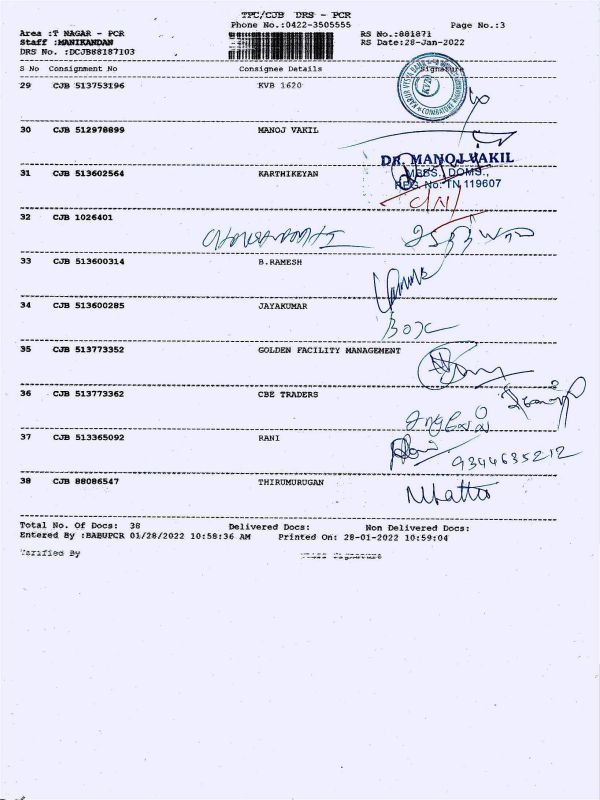 TPC/CJB DRS - PCR
Phone No.:0422-3505555 Page No.:3
Area :T NAGAR - PCR RS No.:881871
Staff :MANIKANDAN RS Date:28-Jan-2022
DRS No. :DCJB88187103
S No Consignment No Consignee Details Signature
29 CJB 513753196 KVB 1620
KARUR VYSYA BANK
KVB
COIMBATORE
30 CJB 512978899 MANOJ VAKIL
DR. MANOJ VAKIL
MBBS., DOMS.,
REG. No: TN 119607
31 CJB 513602564 KARTHIKEYAN
32 CJB 1026401
33 CJB 513600314 B.RAMESH
34 CJB 513600285 JAYAKUMAR
BOX
35 CJB 513773352 GOLDEN FACILITY MANAGEMENT
36 CJB 513773362 CBE TRADERS
37 CJB 513365092 RANI
9344635212
38 CJB 88086547 THIRUMURUGAN
Total No. Of Docs: 38 Delivered Docs: Non Delivered Docs:
Entered By :BABUPCR 01/28/2022 10:58:36 AM Printed On: 28-01-2022 10:59:04
Verified By Staff Signature